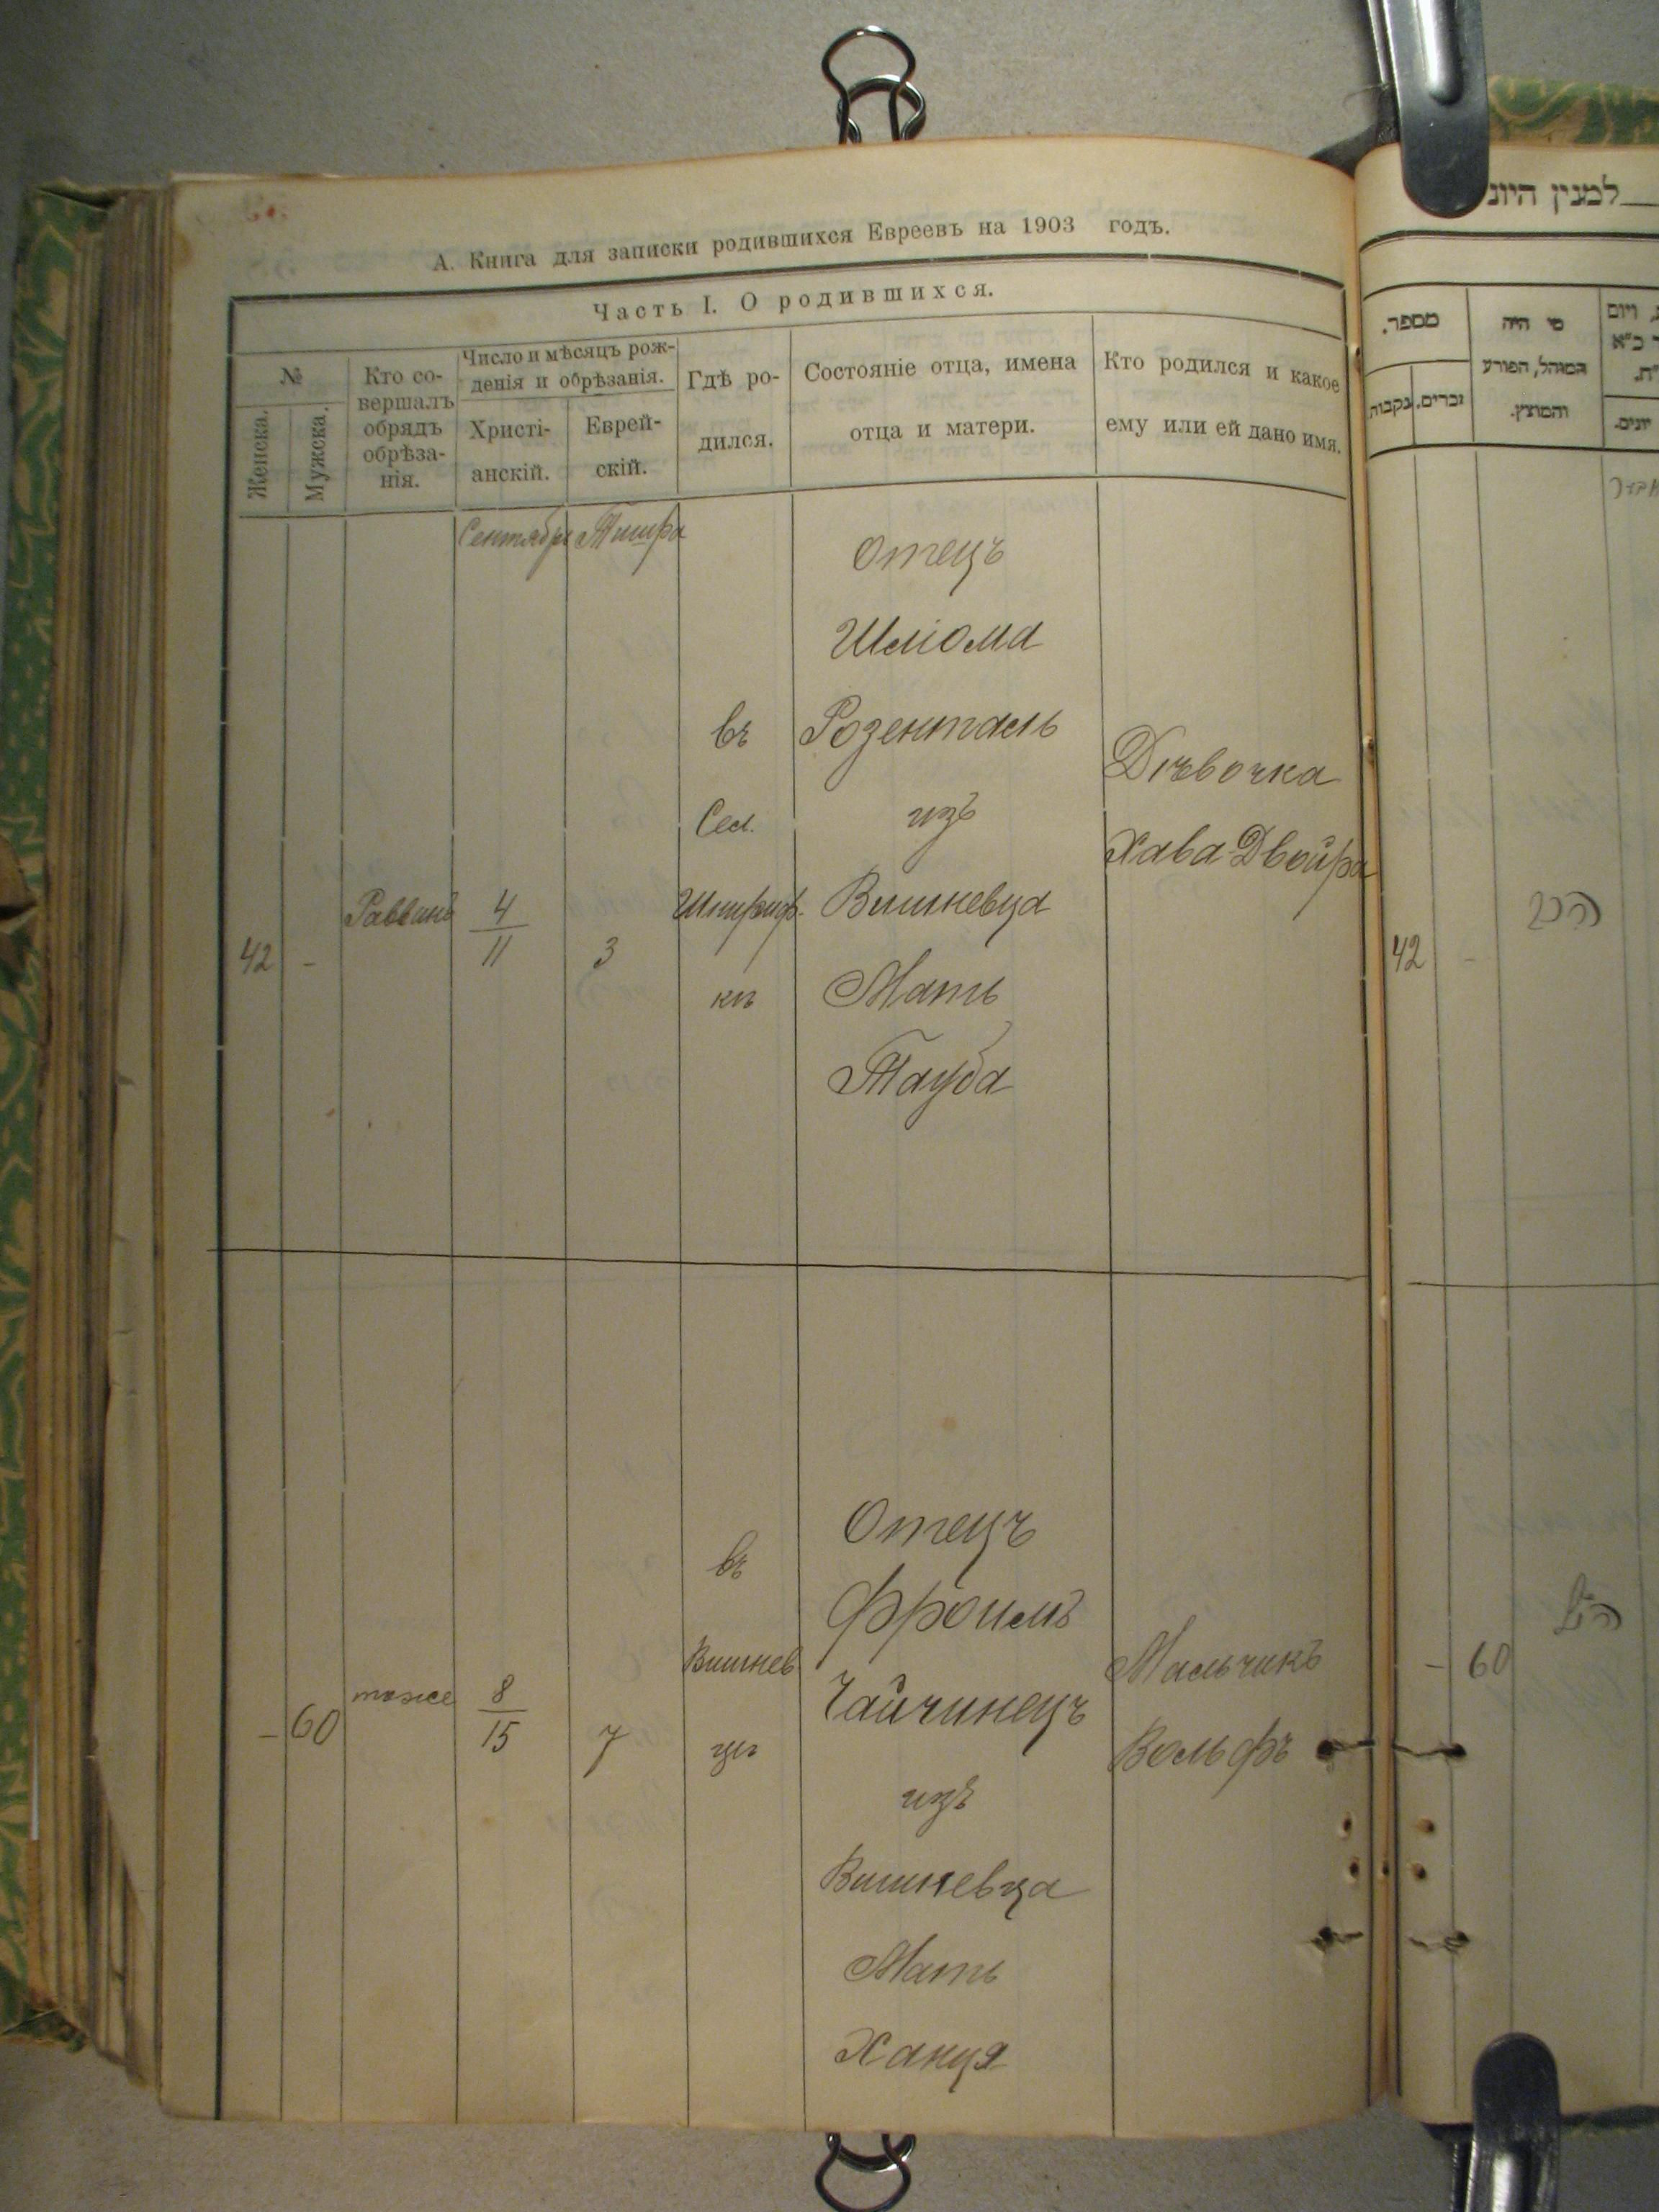 А. Книга для записки родившихся Евреевъ на 1903 годъ.
Часть I. О родившихся.
№
Женска.
Мужска.
Кто со-
вершалъ
обрядъ
обрѣза-
нія.
Число и мѣсяцъ рож-
денія и обрѣзанія.
Христі-
анскій.
Еврей-
скій.
Гдѣ ро-
дился.
Состояніе отца, имена
отца и матери.
Кто родился и какое
ему или ей дано имя.
42
-
Раввинъ
Сентябрь
4
11
Тишра
3
въ
Сел.
кѣ
Отецъ
Шліома
Розенталь
изъ
Вишневца
Мать
Тауба
Дѣвочка
Хава-Двойра
-
60
тоже
8
15
7
въ
Вишнев
цѣ
Отецъ
Фроимъ
Чайчинецъ
изъ
Вишневца
Мать
Ханця
Мальчикъ
Вольфъ
למנין היונ
מספר.
זכרים.
נקבות
מי היה
המוהל, הפורע
והמוצץ.
יונים.
42
-
-
60